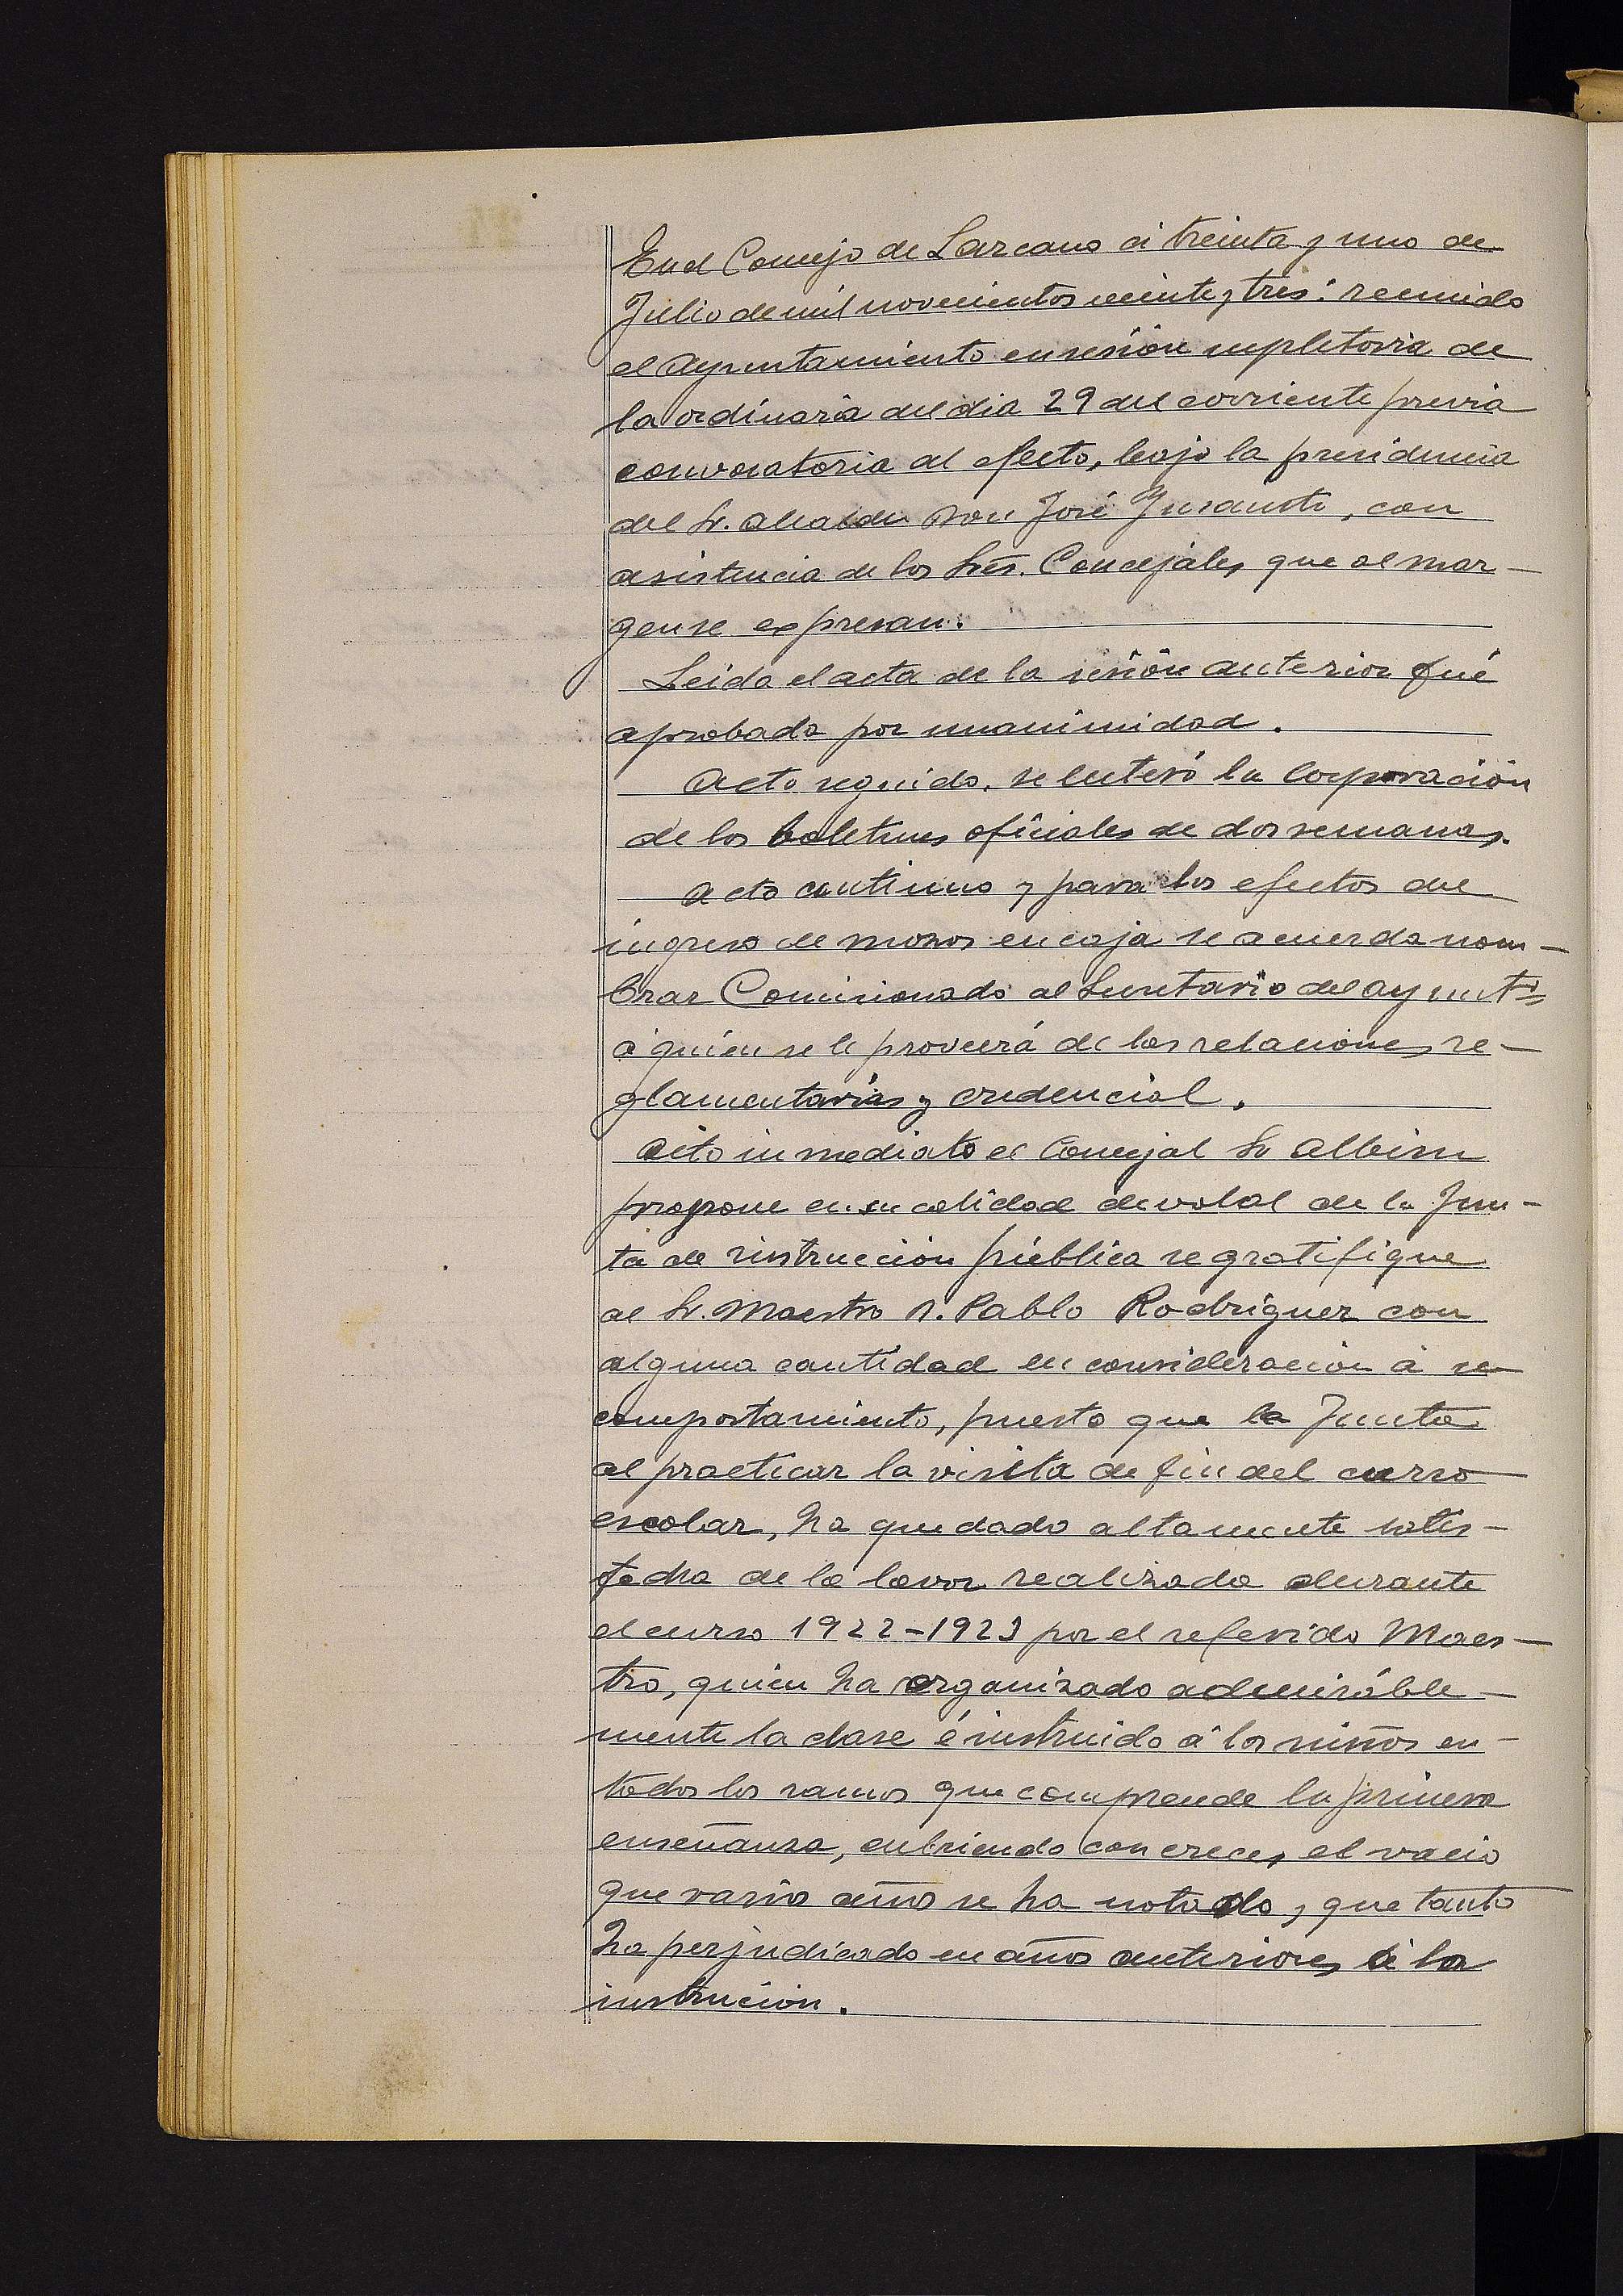 En el Concejo de Lazcano á treinta y uno de
Julio de mil novecientos veinte y tres: reunido
el Ayuntamiento en sesión supletoria de
la ordinaria del dia 29 del corriente previa
convocatoria al efecto, bajo la presidencia
del Sr. Alcalde Don José Insausti, con
asistencia de los Sres. Concejales que al mar-
gen se expresan.
Leida el acta de la sesión anterior fué
aprobada por unanimidad.
Acto seguido, se enteró la corporación
de los boletines oficiales de dos semanas.
Acto continuo y para los efectos del
ingreso de mozos en caja se acuerda nom-
brar Comisionado al Secretario del Ayunt.º
á quien se le proveerá de las relaciones re-
glamentarias y credencial.
Acto inmediato el Concejal Sr Albisu
propone en su calidad de volal de la Jun-
ta de instrucción pública se gratifique
al Sr. Maestro D. Pablo Rodriguez con
alguna cantidad en consideración á su
comportamiento, puesto que la Junta
al practicar la visita de fin del curso
escolar, ha quedado altamente satis-
fecha de la lavor realizada durante
el curso 1922-1923 por el referido Maes-
tro, quien ha organizado admiráble-
mente la clase é instruido á los niños en
todos los ramos que comprende la primera
enseñanza, cubriendo con creces el vacio
que varios años se ha notado, que tanto
ha perjudicado en años anteriores á la
instrucion.